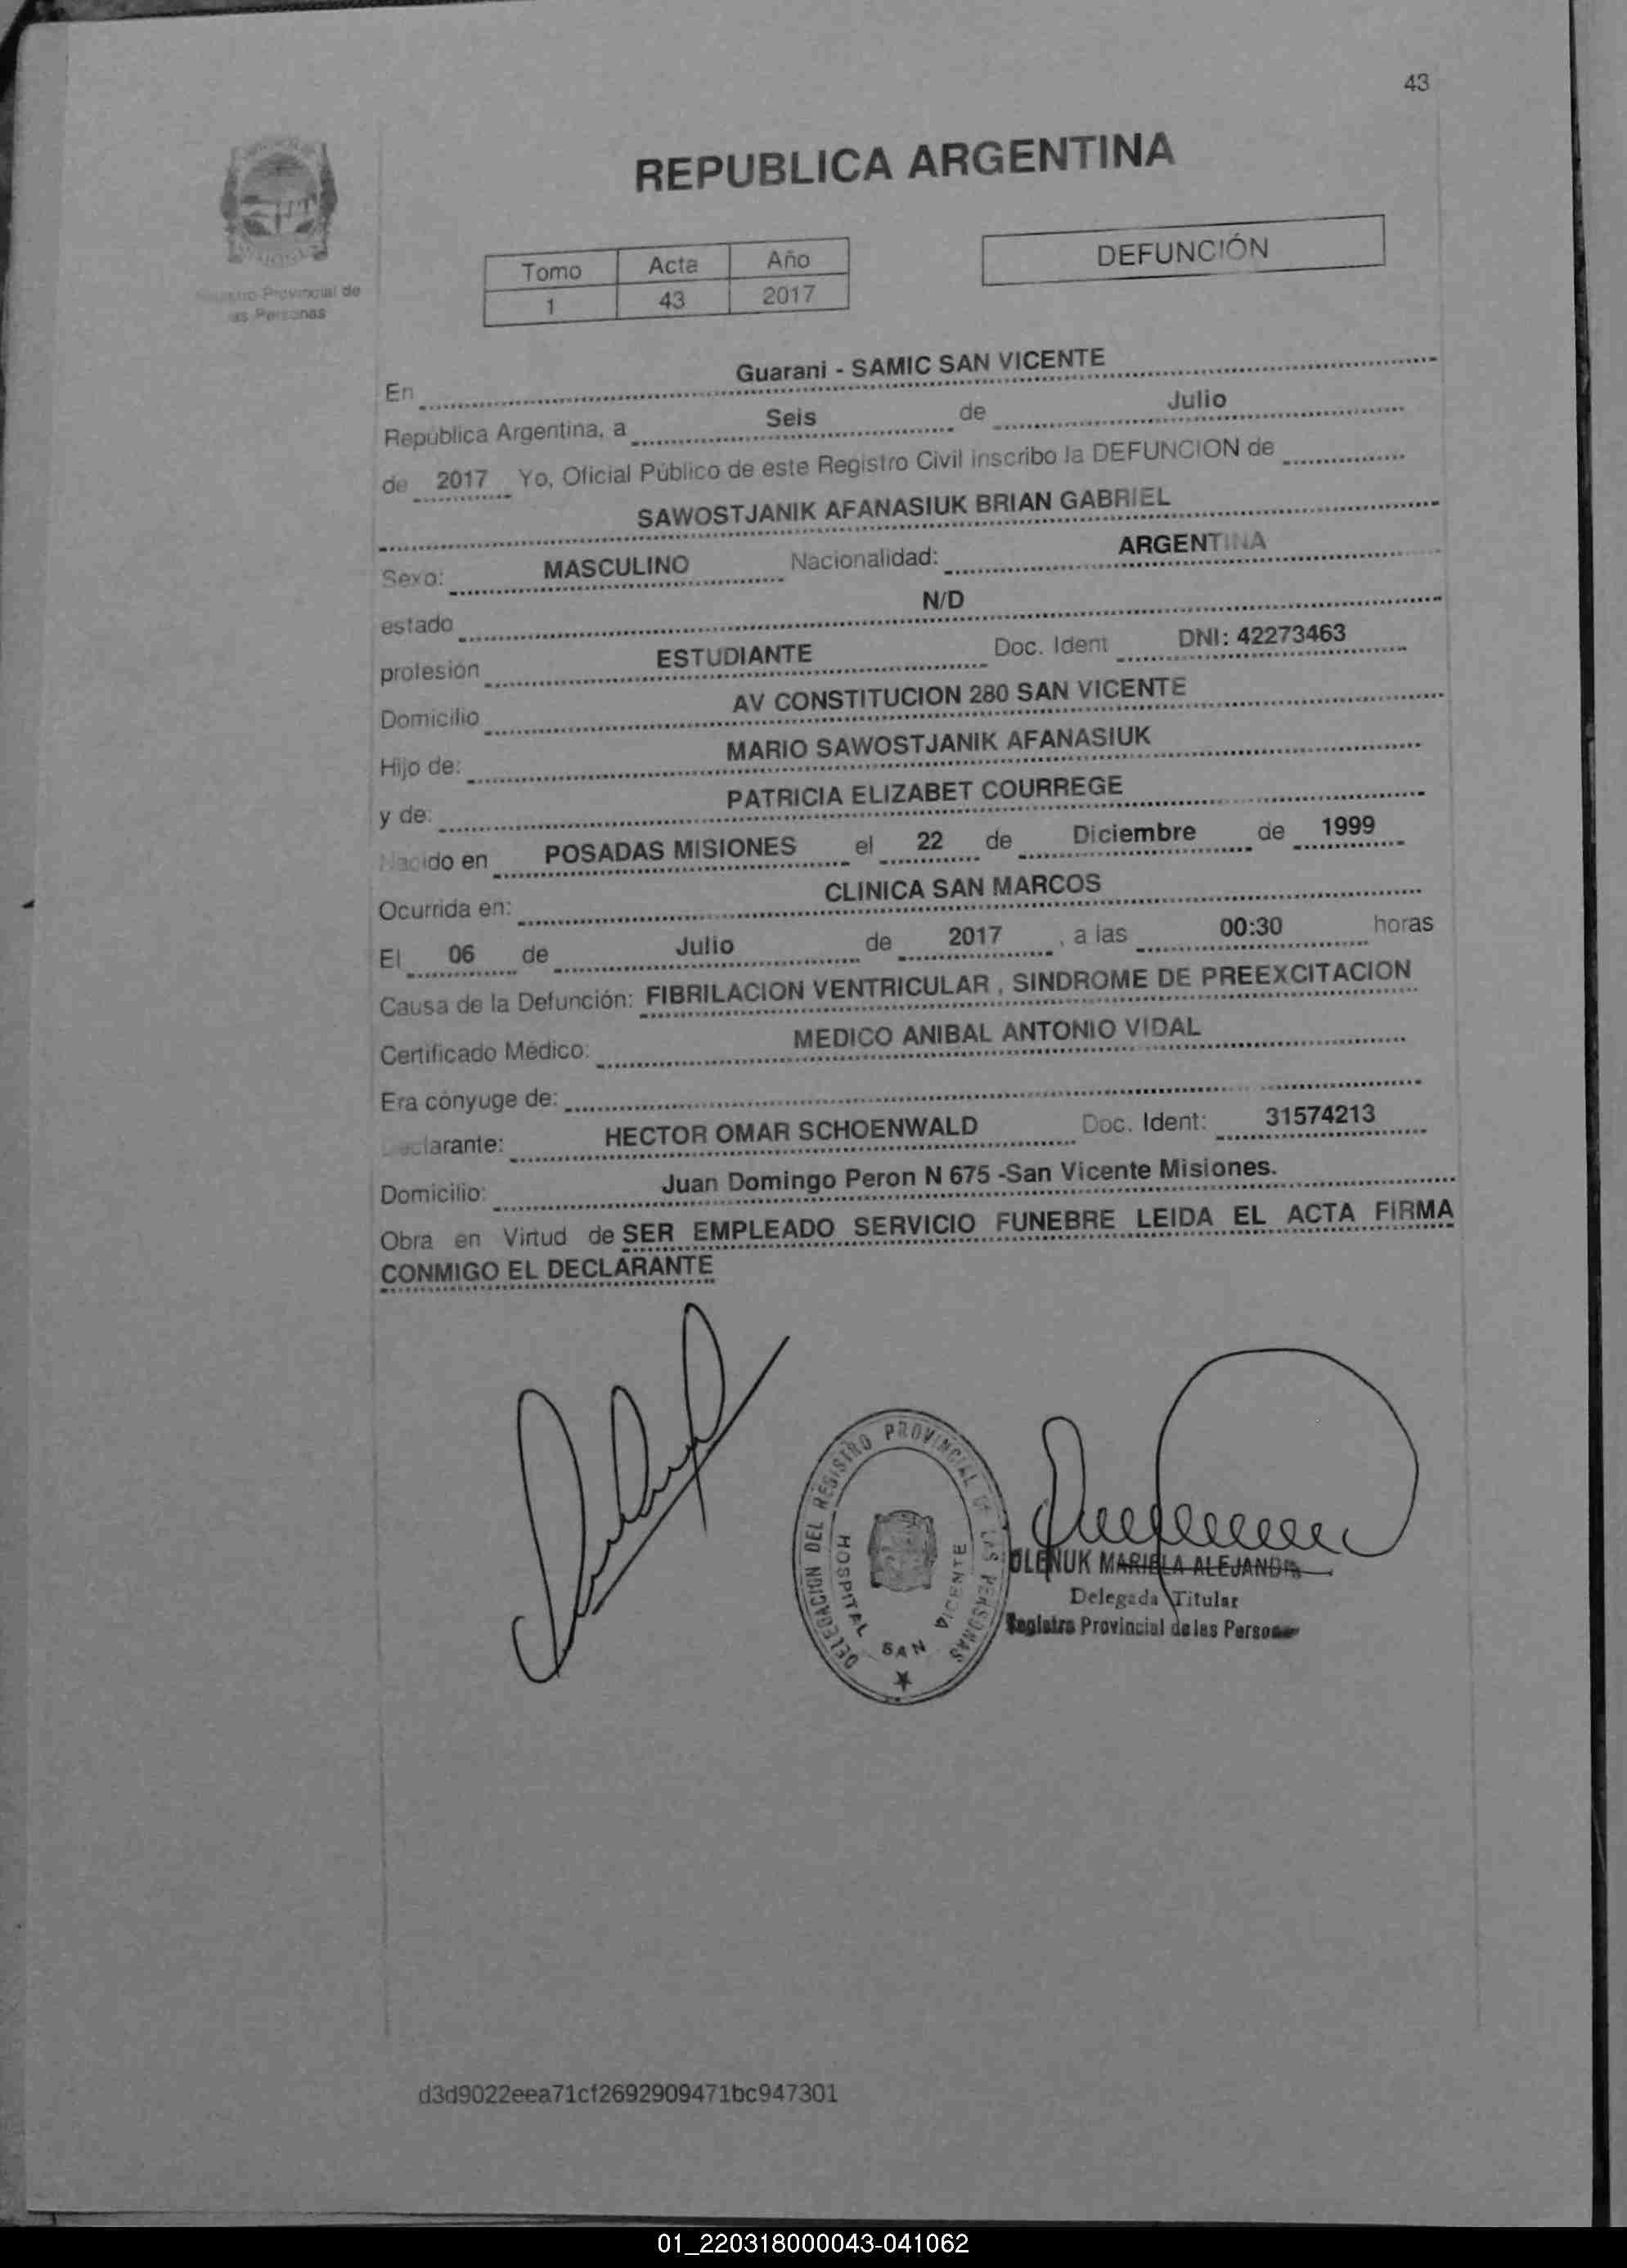 43
REPUBLICA ARGENTINA
Registro Provincial de
las Personas
Tomo Acta Año
1 43 2017
DEFUNCIÓN
En Guarani - SAMIC SAN VICENTE
República Argentina, a Seis de Julio
de 2017 Yo, Oficial Público de este Registro Civil inscribo la DEFUNCION de
SAWOSTJANIK AFANASIUK BRIAN GABRIEL
Sexo: MASCULINO Nacionalidad: ARGENTINA
estado N/D
profesión ESTUDIANTE Doc. Ident DNI: 42273463
Domicilio AV CONSTITUCION 280 SAN VICENTE
Hijo de: MARIO SAWOSTJANIK AFANASIUK
y de: PATRICIA ELIZABET COURREGE
Nacido en POSADAS MISIONES el 22 de Diciembre de 1999
Ocurrida en: CLINICA SAN MARCOS
El 06 de Julio de 2017 , a las 00:30 horas
Causa de la Defunción: FIBRILACION VENTRICULAR , SINDROME DE PREEXCITACION
Certificado Médico: MEDICO ANIBAL ANTONIO VIDAL
Era cónyuge de:
Declarante: HECTOR OMAR SCHOENWALD Doc. Ident: 31574213
Domicilio: Juan Domingo Peron N 675 -San Vicente Misiones.
Obra en Virtud de SER EMPLEADO SERVICIO FUNEBRE LEIDA EL ACTA FIRMA
CONMIGO EL DECLARANTE
DELEGACION DEL REGISTRO PROVINCIAL DE LAS PERSONAS
HOSPITAL SAN VICENTE
OLENUK MARIELA ALEJANDRA
Delegada Titular
Registro Provincial de las Personas
d3d9022eea71cf2692909471bc947301
01_220318000043-041062